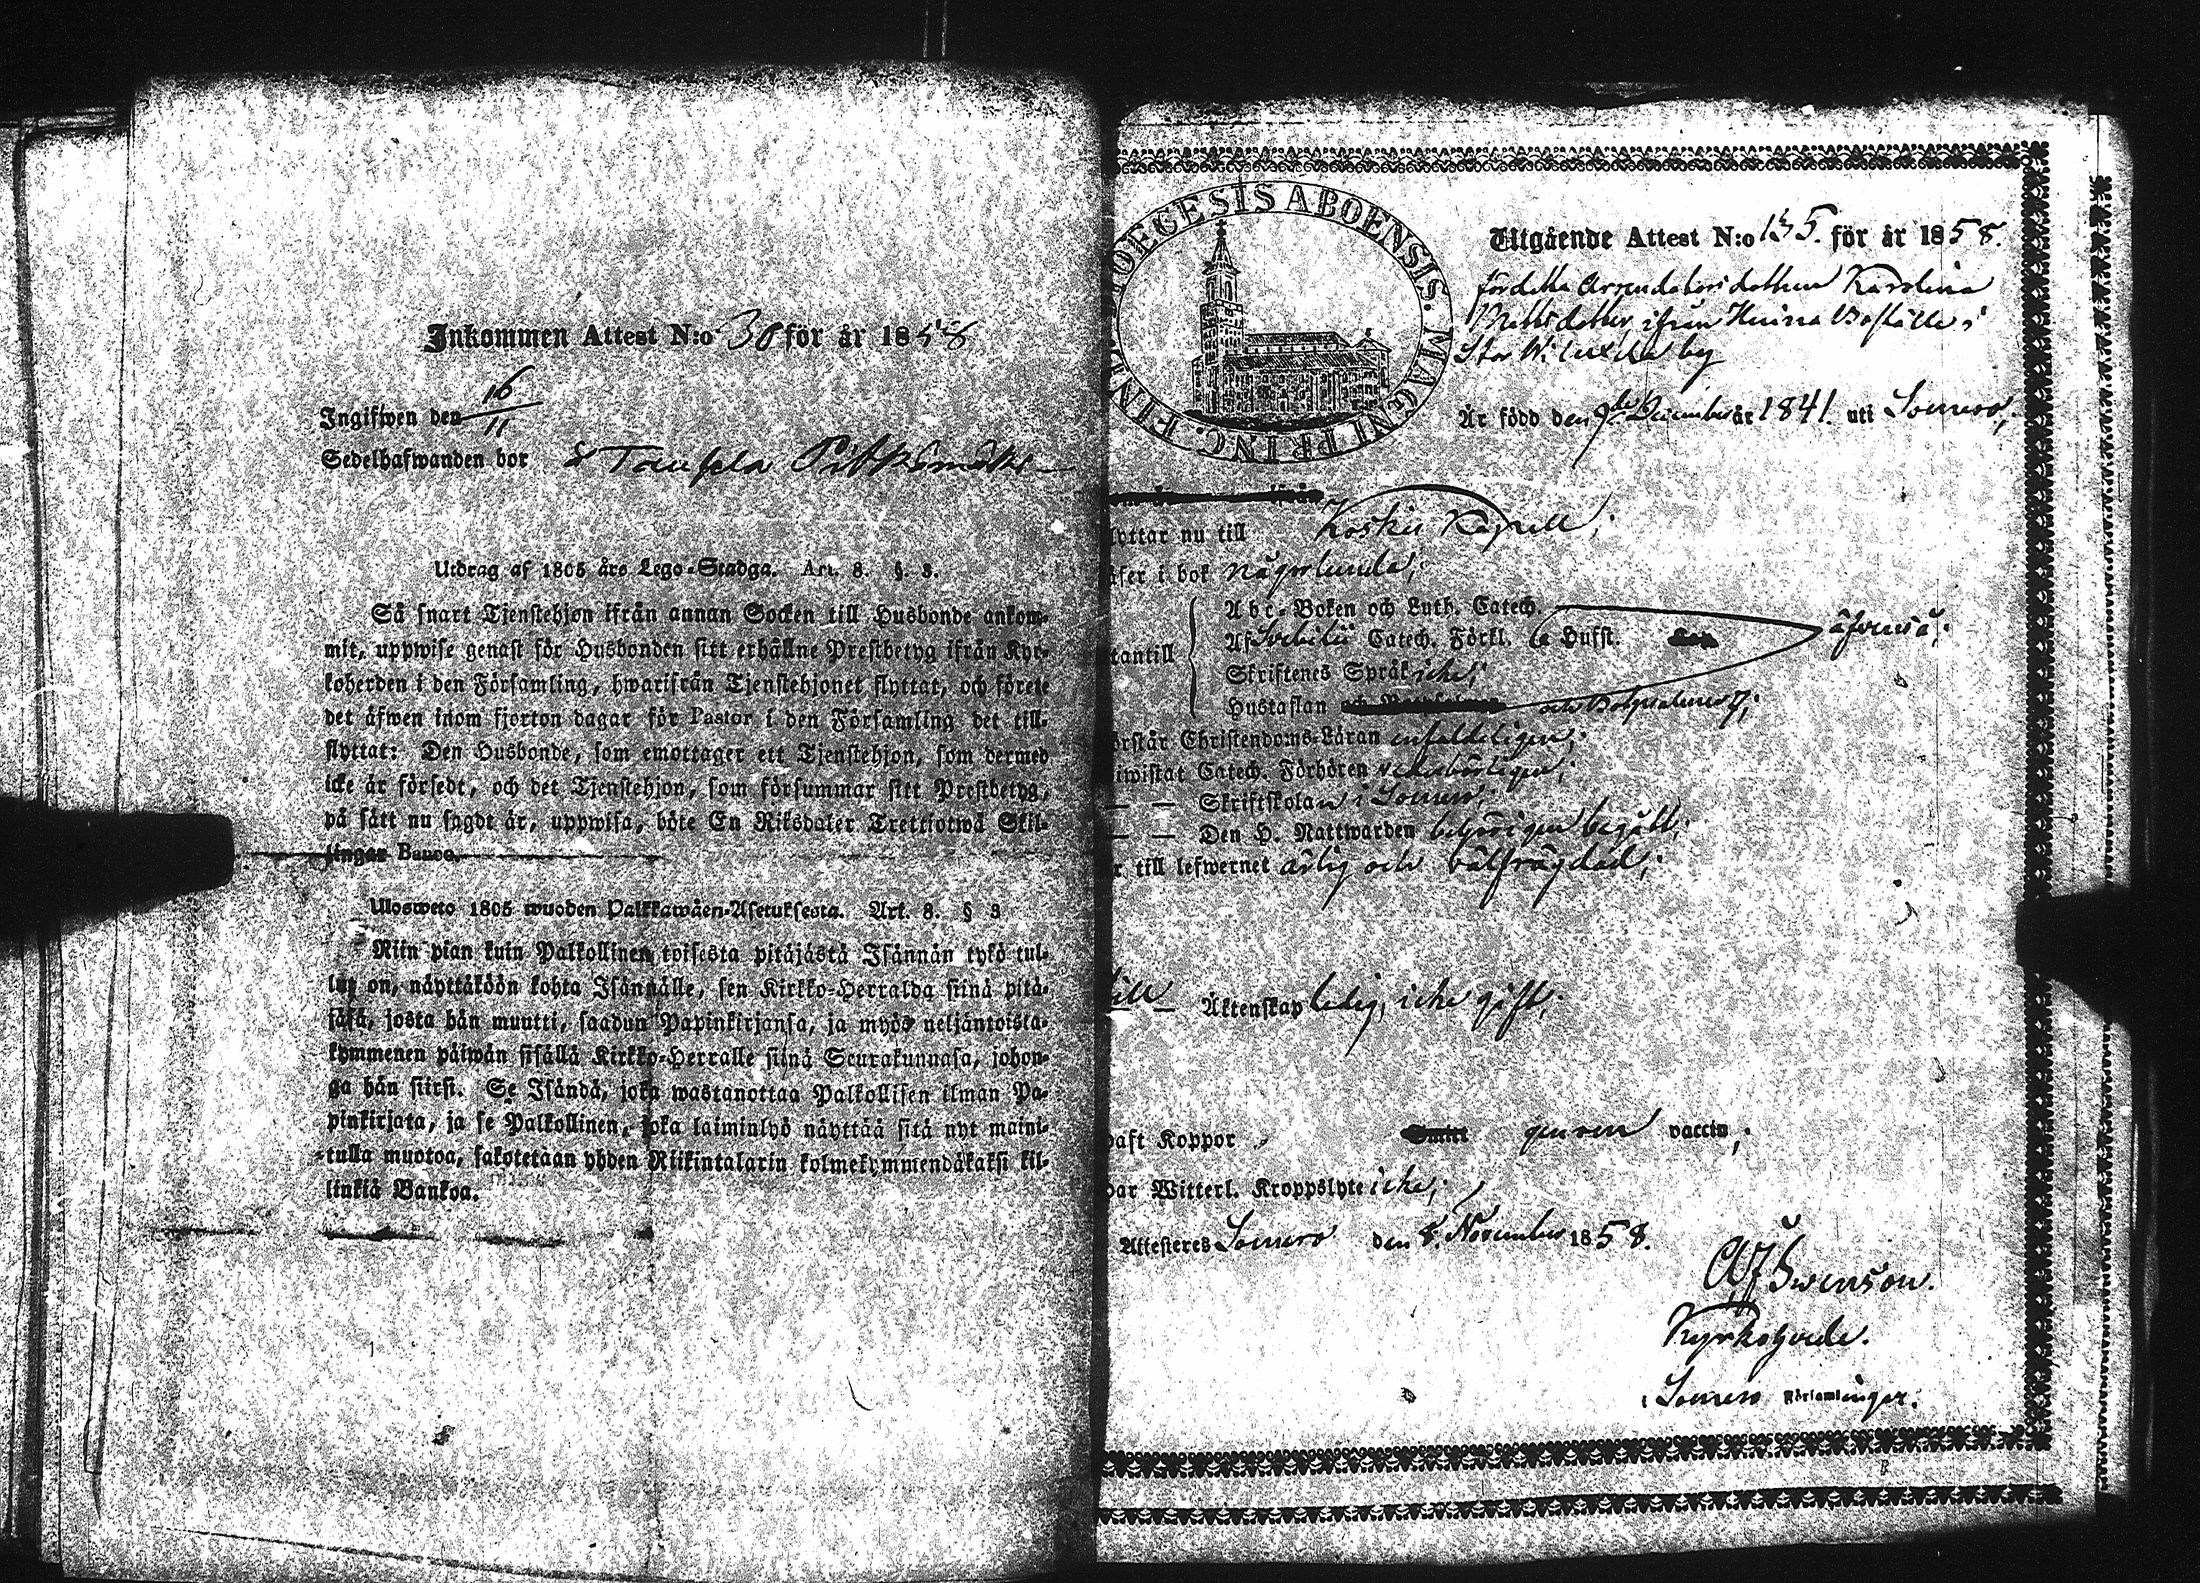 Inkommen Attest N:o 30 för år 1858
Ingifwen den 16/11
Sedelhafwanden bor
Utdrag af 1805 års Lego-Stadga. Art. 8. §. 3.
Så snart Tjenstehjon ifrån annan Socken till Husbonde ankom-
mit, uppwise genast för Husbonden sitt erhållne Prestbetyg ifrån Kyr-
koherden i den Församling, hwarifrån Tjenstehjonet flyttat, och förete
det äfwen inom fjorton dagar för Pastor i den Församling det till-
flyttat: Den Husbonde, som emottager ett Tjenstehjon, som dermed
icke är försedt, och det Tjenstehjon, som försummar sitt Prestbetyg,
på sätt nu sagdt är, uppwisa, böte En Riksdaler Trettiotwå Skil-
lingar Banco.
Ulosweto 1805 wuoden Palkkawäen-Asetuksesta. Art. 8. § 3
Niin pian kuin Palkollinen toisesta pitäjästä Isännän tykö tul-
lut on, näyttäköön kohta Isännälle, sen Kirkko-Herralda siinä pitä-
jäsä, josta hän muutti, saadun Papinkirjansa, ja myös neljäntoista-
kymmenen päiwän sisällä Kirkko-Herralle siinä Seurakunnasa, johon-
ga hän siirsi. Se Isändä, joka wastanottaa Palkollisen ilman Pa-
pinkirjata, ja se Palkollinen, joka laiminlyö näyttää sitä nyt maini-
tulla muotoa, sakotetaan yhden Riikintalarin kolmekymmendäkaksi kil-
linkiä Bankoa.
FINL. DIOECESIS ABOENSIS. MAGNI PRINC.
Utgående Attest N:o 135. för år 1858.
föredetta Arrendatorsdottern Karolina
Mattsdotter, ifrån Heinä Boställe i
Stor by
Är född den 9de December år 1841. uti Somero;
lyttar nu till Koskis Kapell;
äser i bok någorlunda;
Abc-Boken och Luth. Catech.
Af Svebelii Catech. Förkl. 6 Hufst. äfvenså;
tantill
Skriftenes Språk icke;
Hustaflan och Botpsalmer 7;
örstår Christendoms-Läran enfaldeligen;
iwistat Catech. Förhören vederbörligen;
— — Skriftskolan i Somero;
— — Den H. Nattwarden behörigen begått;
r till lefwernet ärlig och välfrägdad;
till
— Äktenskap ledig, icke gift;
haft Koppor genom vaccin;
har Witterl. Kroppslyte icke;
Attesteres Somero den 8. November 1858.
Swenson.
Kyrkoherde.
i Somero Församlingar.